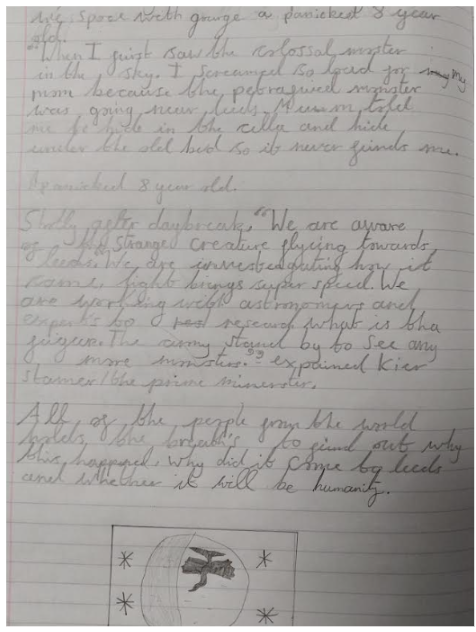 We spoce with grange a panicked 8 year
old.
"When I first saw the colossal monster
in the sky. I screamed so loud for my
mom because the petrafured monster
was going near leeds. Mum told
me to hide in the cella and hide
under the old bed so it never finds me.
A panicked 8 year old.
Shotly after daybreak, "We are aware
of strange creature flycing towards
of leeds. We are investegating how it
came, fight brings super speed. We
are working with astronomers and
experts to research what is tha
figure. The army stand by to see any
more monsters." expained Kier
Stamer/the prime minerster.
All of the people from the world
holds the breath's to find out why
this happened. Why did it come by leeds
and whether it will be humanity.